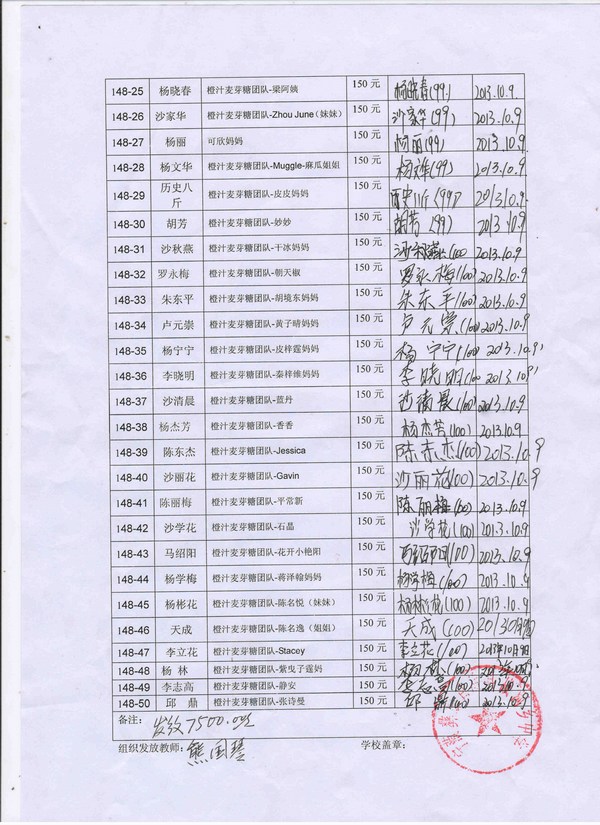 148-25 杨晓春 橙汁麦芽糖团队-梁阿姨 150元 杨晓春(99) 2013.10.9
148-26 沙家华 橙汁麦芽糖团队-Zhou June（妹妹） 150元 沙家华(99) 2013.10.9
148-27 杨丽 可欣妈妈 150元 杨丽(99) 2013.10.9
148-28 杨文华 橙汁麦芽糖团队-Muggle-麻瓜姐姐 150元 杨文华(99) 2013.10.9
148-29 历史八斤 橙汁麦芽糖团队-皮皮妈妈 150元 (99) 2013.10.9
148-30 胡芳 橙汁麦芽糖团队-妙妙 150元 胡芳(99) 2013.10.9
148-31 沙秋燕 橙汁麦芽糖团队-干冰妈妈 150元 沙秋燕(100 2013.10.9
148-32 罗永梅 橙汁麦芽糖团队-朝天椒 150元 罗永梅(100) 2013.10.9
148-33 朱东平 橙汁麦芽糖团队-胡境东妈妈 150元 朱东平(100) 2013.10.9
148-34 卢元崇 橙汁麦芽糖团队-黄子晴妈妈 150元 卢元崇(100) 2013.10.9
148-35 杨宁宁 橙汁麦芽糖团队-皮梓霆妈妈 150元 杨宁宁(100) 2013.10.9
148-36 李晓明 橙汁麦芽糖团队-秦梓维妈妈 150元 李晓明(100) 2013.10.9
148-37 沙清晨 橙汁麦芽糖团队-蓝丹 150元 沙清晨(100) 2013.10.9
148-38 杨杰芳 橙汁麦芽糖团队-香香 150元 杨杰芳(100) 2013.10.9
148-39 陈东杰 橙汁麦芽糖团队-Jessica 150元 陈东杰(100) 2013.10.9
148-40 沙丽花 橙汁麦芽糖团队-Gavin 150元 沙丽花(100) 2013.10.9
148-41 陈丽梅 橙汁麦芽糖团队-平常新 150元 陈丽梅(100) 2013.10.9
148-42 沙学花 橙汁麦芽糖团队-石晶 150元 沙学花(100) 2013.10.9
148-43 马绍阳 橙汁麦芽糖团队-花开小艳阳 150元 (100) 2013.10.9
148-44 杨学梅 橙汁麦芽糖团队-蒋泽翰妈妈 150元 杨学梅(100) 2013.10.9
148-45 杨彬花 橙汁麦芽糖团队-陈名悦（妹妹） 150元 杨彬花(100) 2013.10.9
148-46 天成 橙汁麦芽糖团队-陈名逸（姐姐） 150元 天成(100)
148-47 李立花 橙汁麦芽糖团队-Stacey 150元 李立花(100) 2013年10月9日
148-48 杨林 橙汁麦芽糖团队-紫曳子霆妈 150元 杨林(100)
148-49 李志高 橙汁麦芽糖团队-静安 150元 李志高(100) 2013.10.9
148-50 邱鼎 橙汁麦芽糖团队-张诗曼 150元 邱鼎(100) 2013.10.9
备注： 发放7500.00元
组织发放教师：熊国琴 学校盖章：